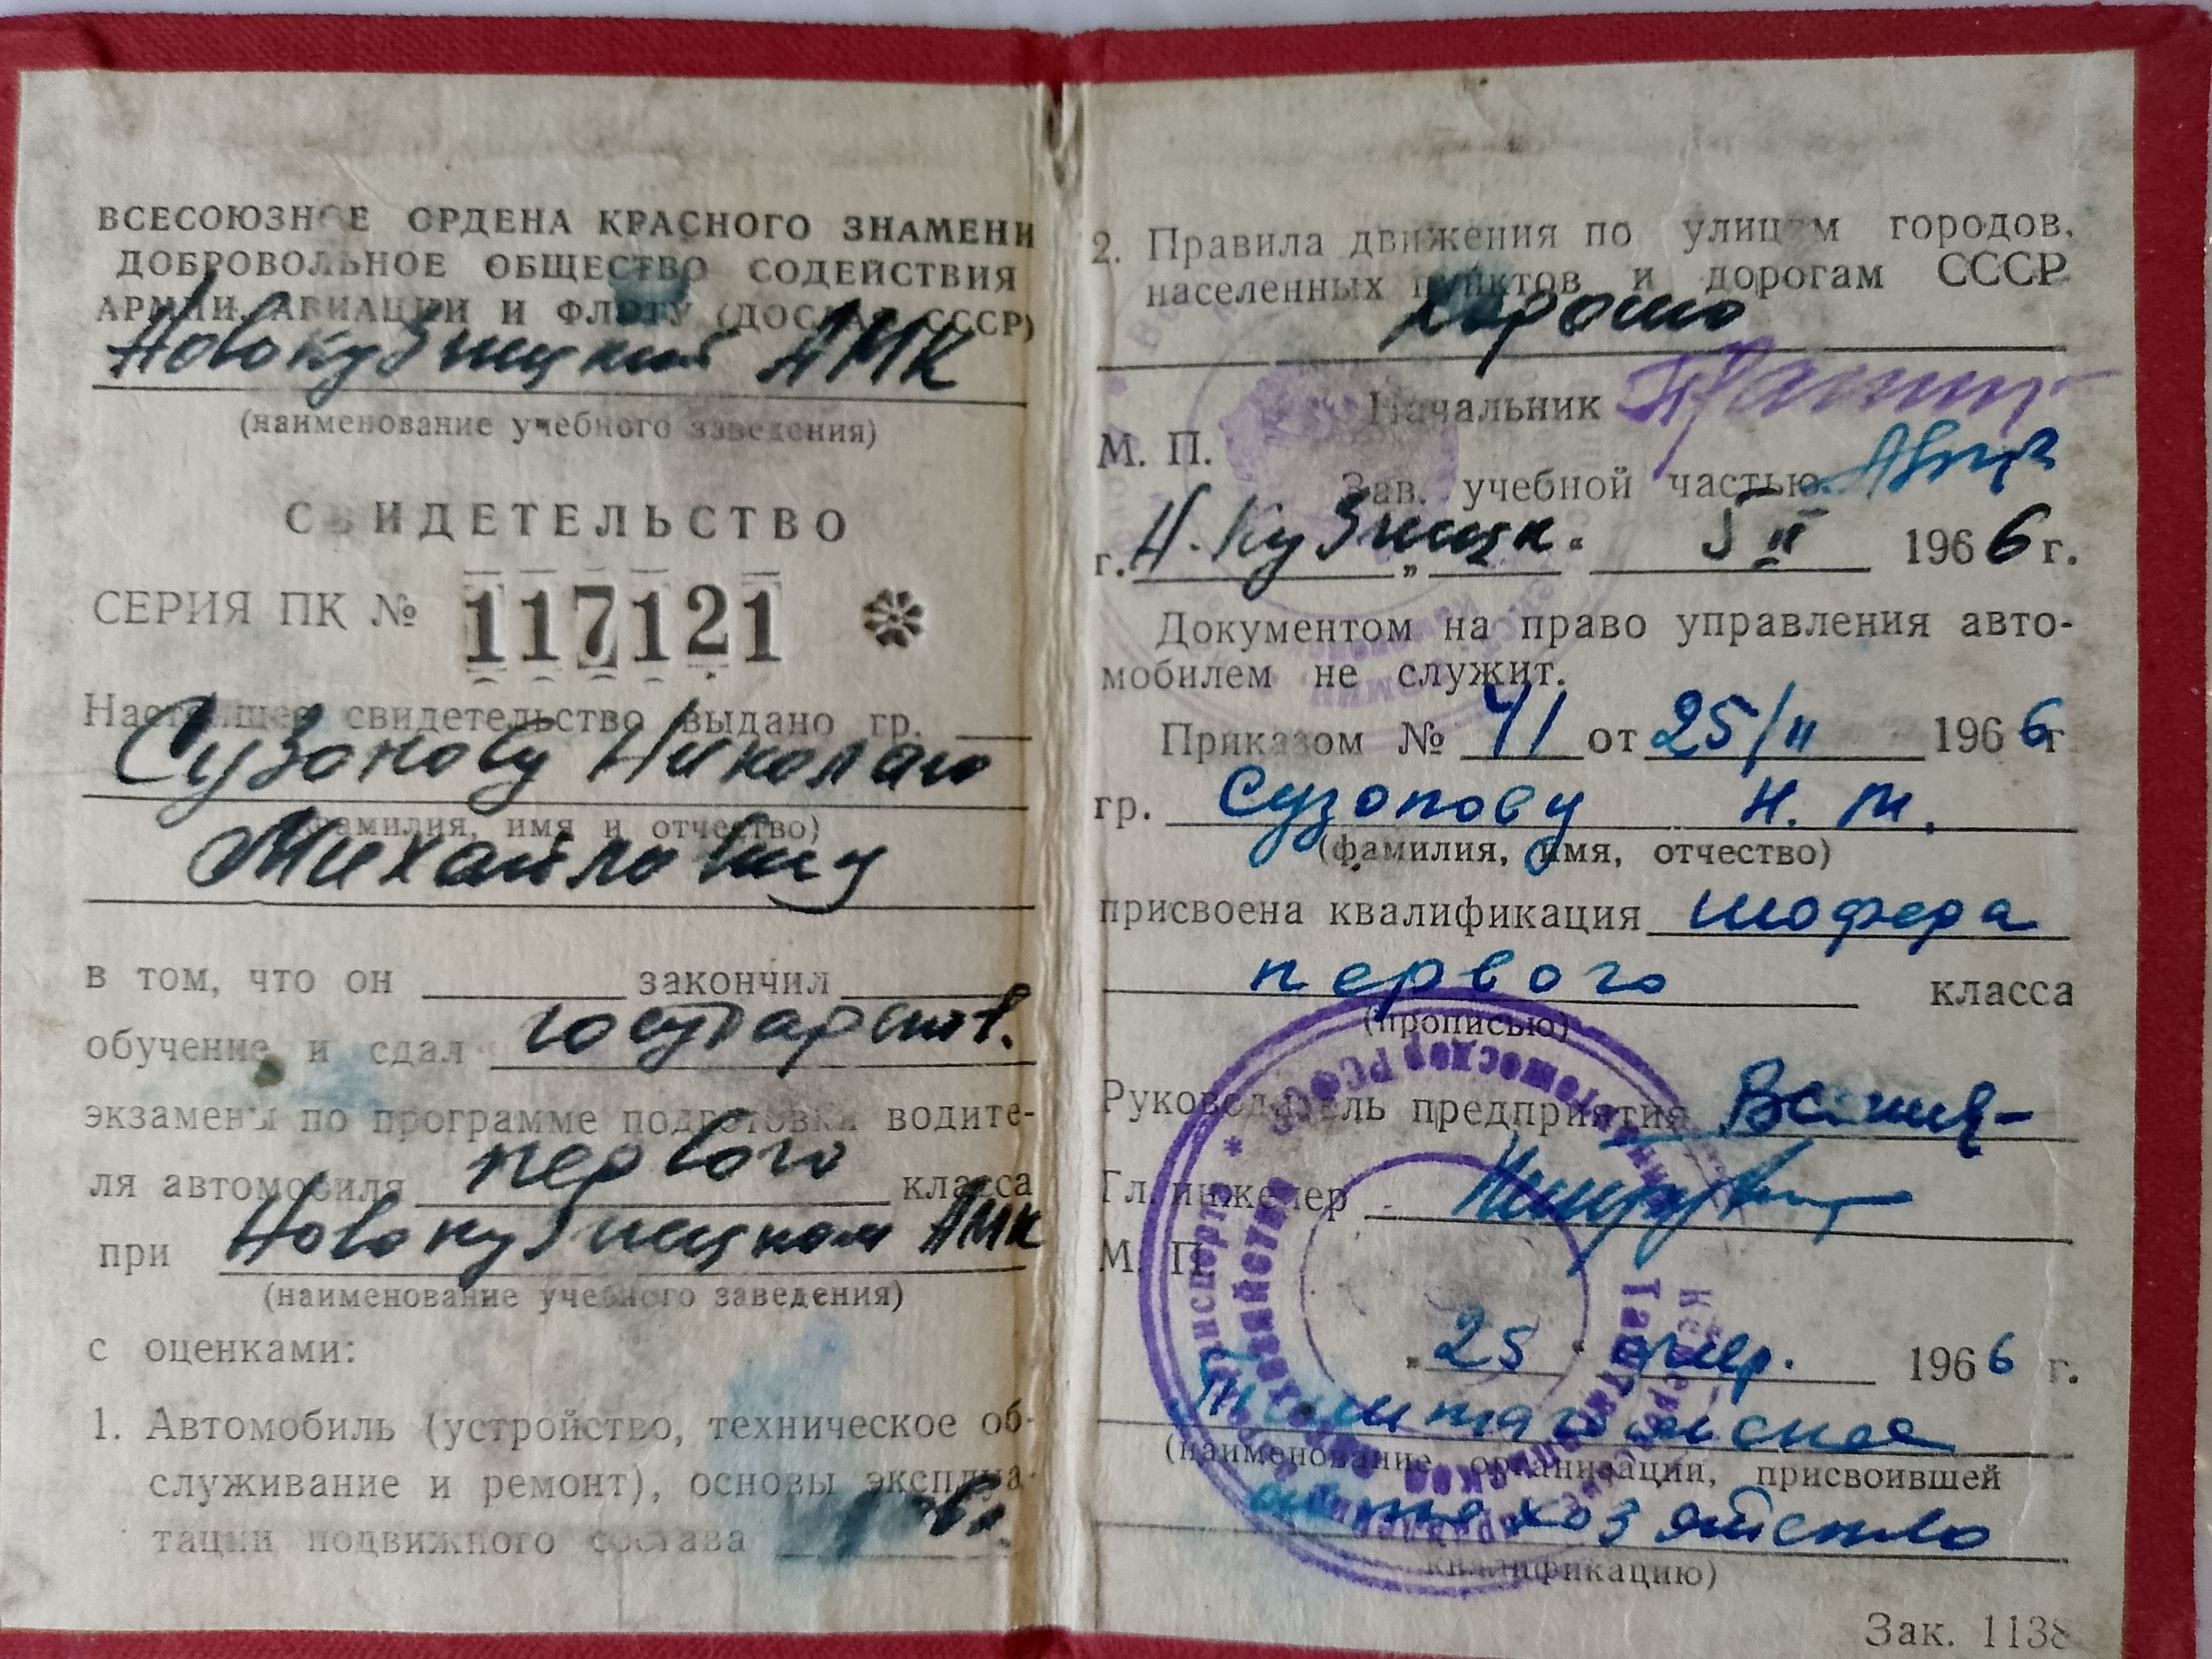 ВСЕСОЮЗНОЕ ОРДЕНА КРАСНОГО ЗНАМЕНИ
ДОБРОВОЛЬНОЕ ОБЩЕСТВО СОДЕЙСТВИЯ
АРМИИ, АВИАЦИИ И ФЛОТУ (ДОСААФ СССР)
Новокузнецкий АМК
(наименование учебного заведения)
СВИДЕТЕЛЬСТВО
СЕРИЯ ПК № 117121
Настоящее свидетельство выдано гр.
Сузонову Николаю
(фамилия, имя и отчество)
Михайловичу
в том, что он закончил
обучение и сдал государств.
экзамены по программе подготовки водите-
ля автомобиля первого класса
при Новокузнецком АМК
(наименование учебного заведения)
с оценками:
1. Автомобиль (устройство, техническое об-
служивание и ремонт), основы эксплуа-
тации подвижного состава
2. Правила движения по улицам городов,
населенных пунктов и дорогам СССР
хорошо
Начальник
М. П.
Зав. учебной частью
г. Н.Кузнецк. " 5 II 1966 г.
Документом на право управления авто-
мобилем не служит.
Приказом № 41 от 25/II 1966 г
гр. Сузонову Н. М.
(фамилия, имя, отчество)
присвоена квалификация шофера
первого класса
(прописью)
Руководитель предприятия
Гл. инженер
М. П.
" 25 " 1966 г.
Таштагольское
(наименование организации, присвоившей
автохозяйство
квалификацию)
Зак. 1138